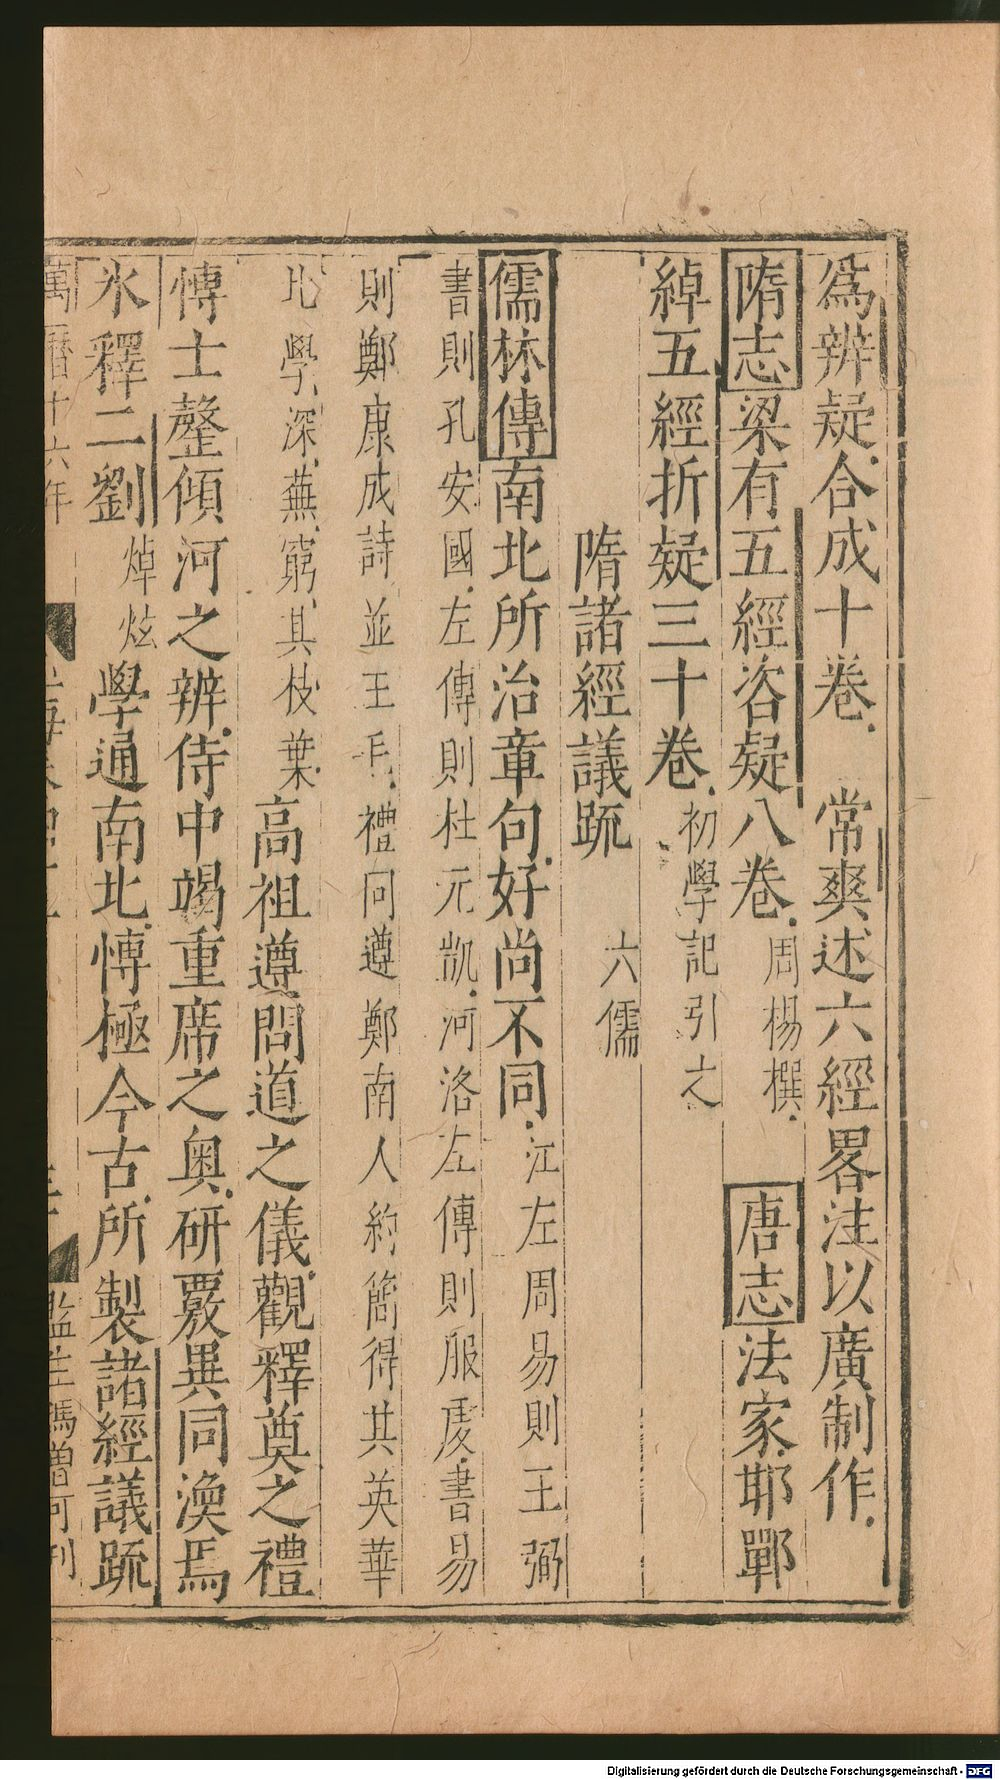 爲辨疑合成十卷　常爽述六經畧注以廣制作
隋志梁有五經咨疑八卷周楊撰　唐志法家邯鄲
綽五經折疑三十卷初學記引之
隋諸經議疏　六儒
儒林傳南北所治章句好尚不同江左周易則王弼
書則孔安國左傳則杜元凱河洛左傳則服虔書易
則鄭康成詩並王毛禮同遵鄭南人約簡得其英華
北學深蕪窮其枝葉高祖遵問道之儀觀釋奠之禮
愽士罄傾河之辨侍中竭重席之奧研覈異同渙焉
氷釋二劉焯炫學通南北愽極今古所製諸經議疏
萬曆十六年
監生馮曾可刊
Digitalisierung gefördert durch die Deutsche Forschungsgemeinschaft - DFG